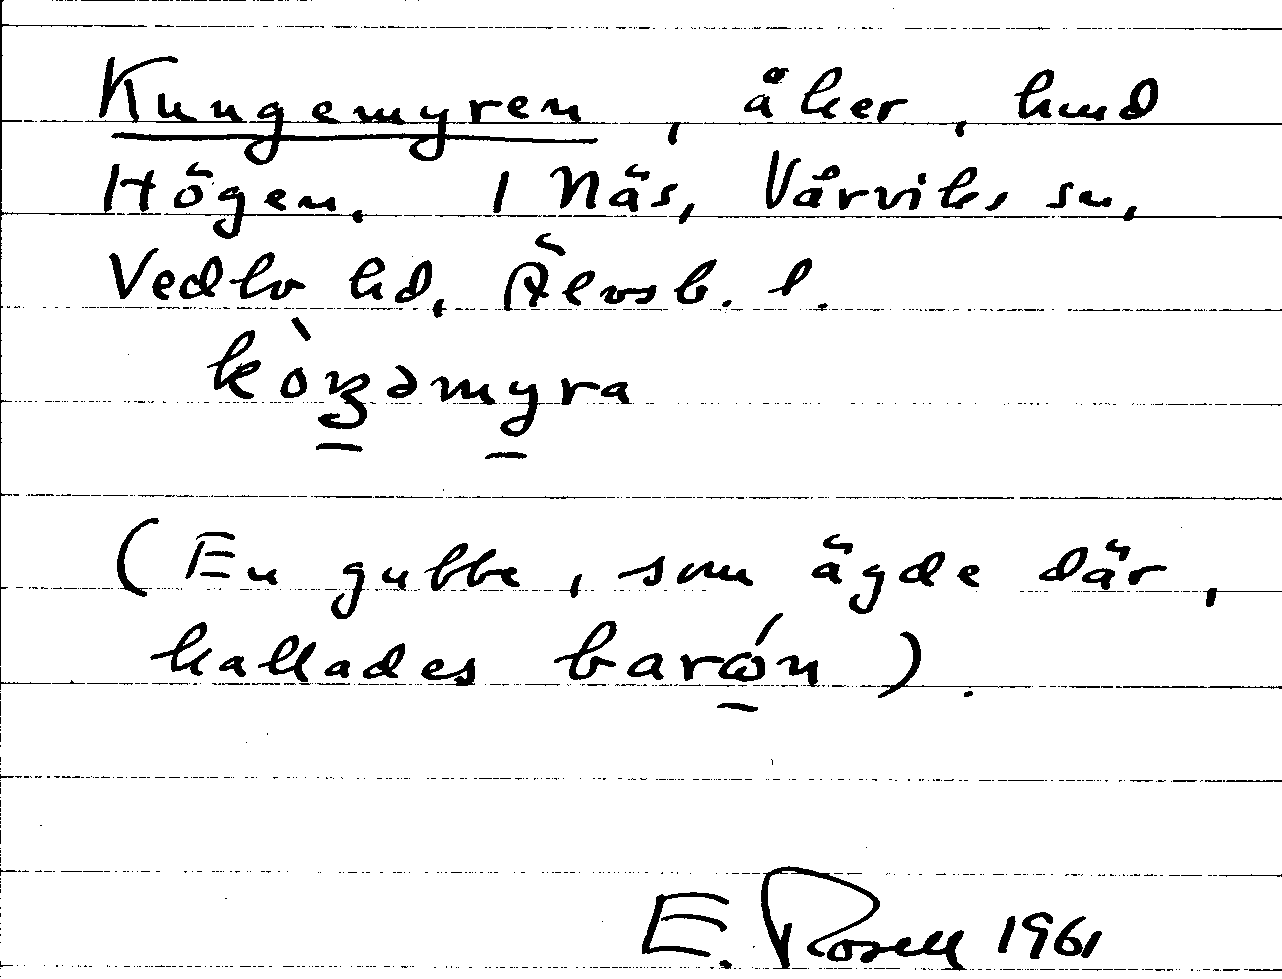 Kungemyren, åker, hmd
Högen. 1 Näs, Vårviks sn,
Vedbo hd, Älvsb. l.
kòŋəmyra
(En gubbe, som ägde där,
kallades barón).
E. Rosell 1961